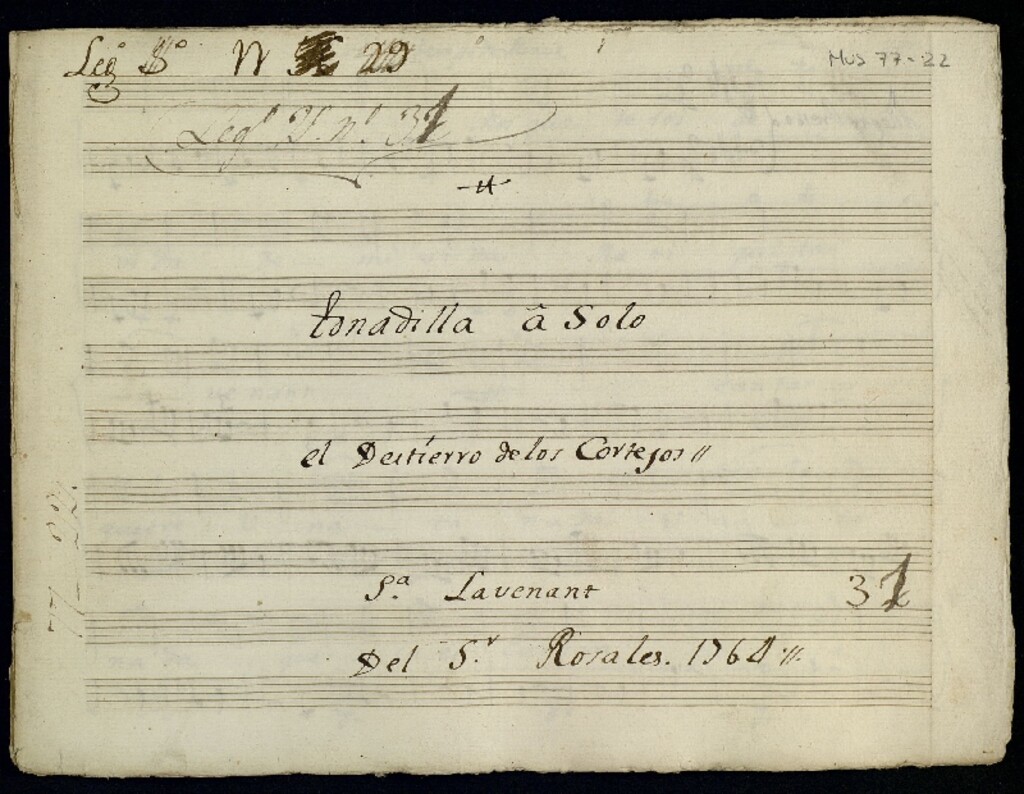 Legº N 29
Mus 77-22
Legº 2º nº 31
tonadilla â Solo
el Destierro de los Cortejos //
Sª Lavenant
31
Del S.r Rosales. 1764 //.
77-22.